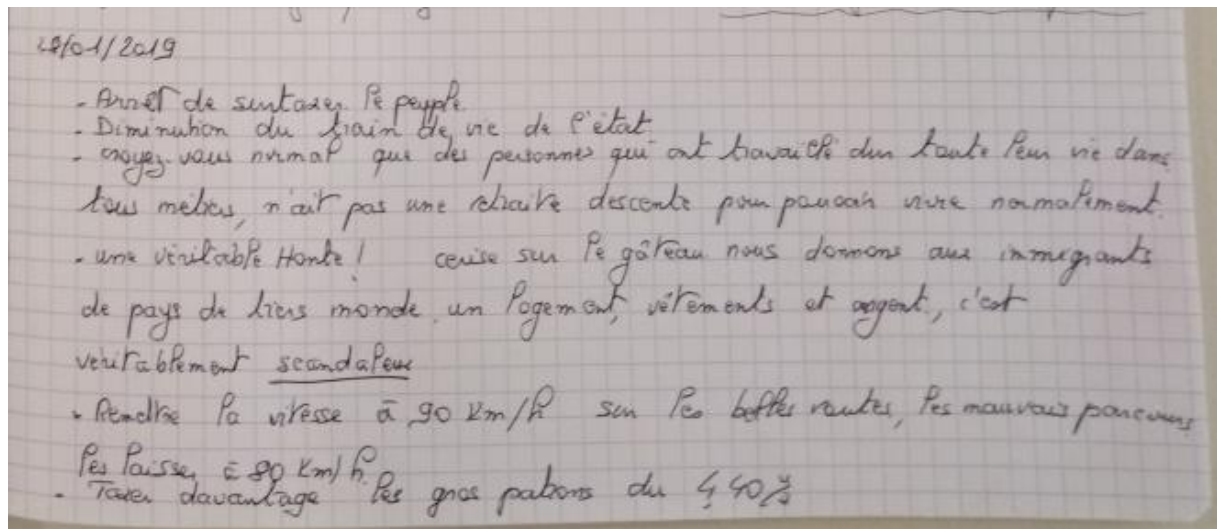 28/01/2019
- Arret de surtaxer le peuple.
- Diminution du train de vie de l'état
- croyez-vous normal que des personnes qui ont travaillé dur toute leur vie dans
tous metiers, n'ait pas une retraite descente pour pouvoir vivre normalement.
- une véritable Honte ! cerise sur le gâteau nous donnons aux immigrants
de pays de tiers monde un logement, vêtements et argent, c'est
veritablement scandaleux
- Rendre la vitesse à 90 Km/h sur les belles routes, les mauvais parcours
les laisser à 80 Km/h.
- Taxer davantage les gros patrons du